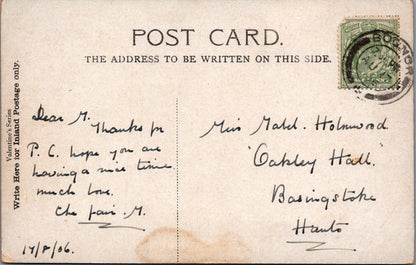 POST CARD.
THE ADDRESS TO BE WRITTEN ON THIS SIDE.
Valentine's Series
Write Here for Inland Postage only.
Dear M.
Thanks for
P. C. hope you are
having a nice time
much love.
M.
17/8/06.
Miss Mabel. Holmwood
"Oakley Hall"
Basingstoke
Hants